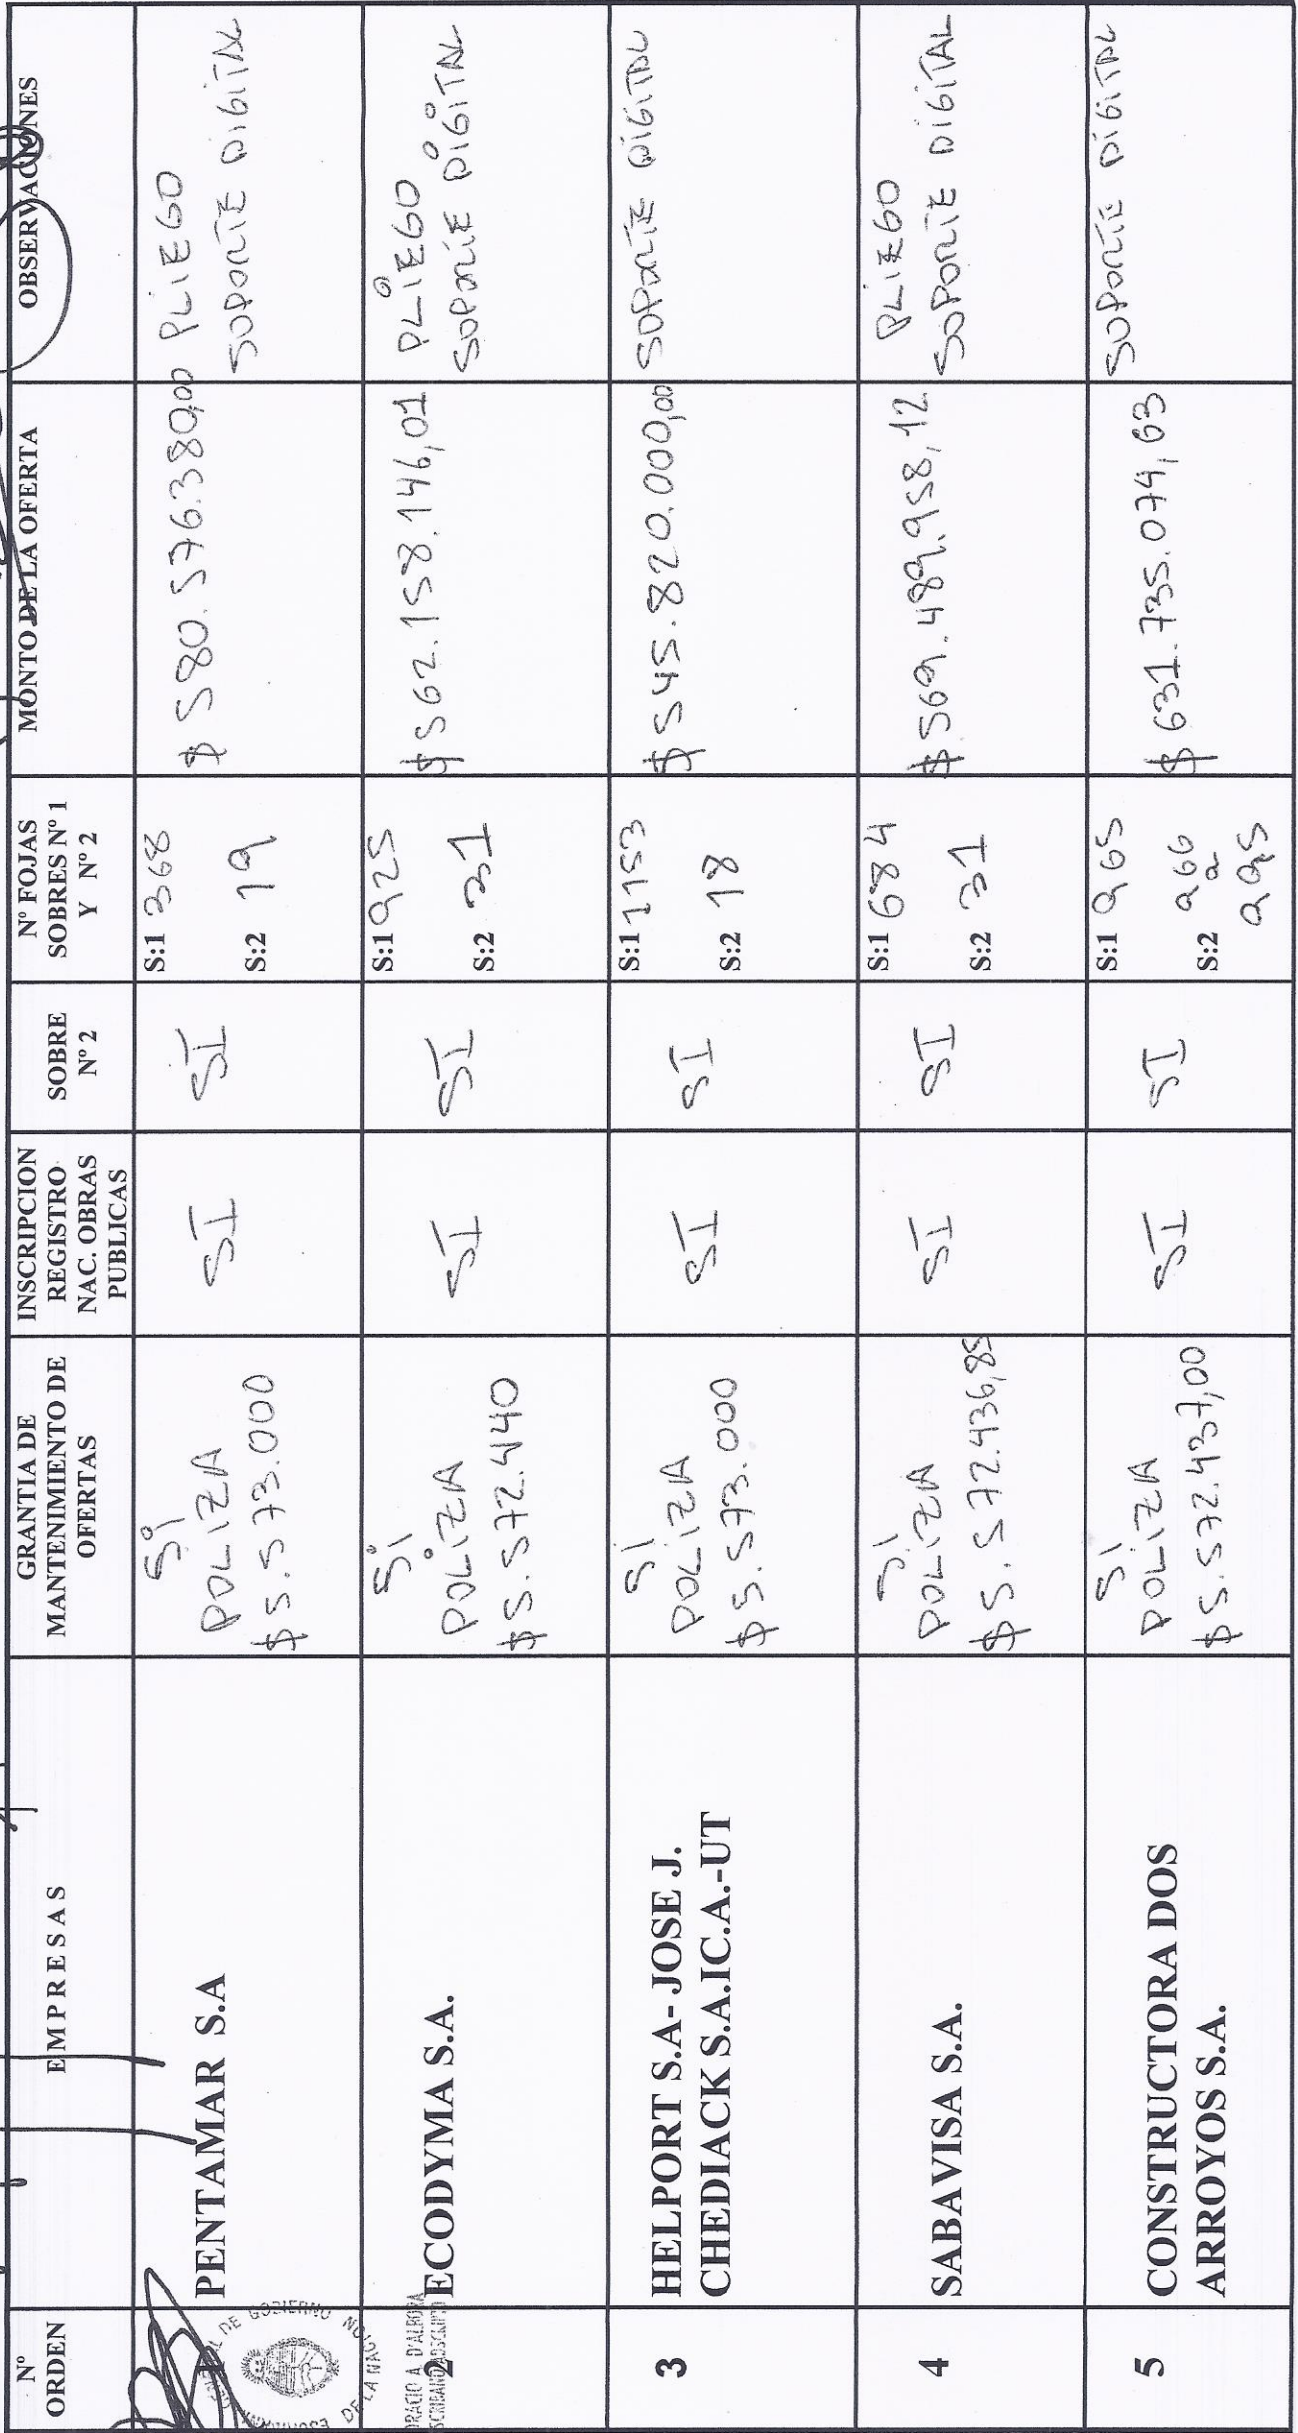 Nº
ORDEN
E M P R E S A S
GRANTIA DE
MANTENIMIENTO DE
OFERTAS
INSCRIPCION
REGISTRO
NAC. OBRAS
PUBLICAS
SOBRE
Nº 2
Nº FOJAS
SOBRES Nº 1
Y Nº 2
MONTO DE LA OFERTA
OBSERVACIONES
PENTAMAR S.A
Si
POLIZA
$5.573.000
SI
SI
S:1 368
S:2 19
$ 580.576.380,00
PLIEGO
SOPORTE DIGITAL
2
ECODYMA S.A.
Si
POLIZA
$5.572.440
SI
SI
S:1 925
S:2 31
$562.158.146,01
PLIEGO
SOPORTE DIGITAL
3
HELPORT S.A- JOSE J.
CHEDIACK S.A.IC.A.-UT
Si
POLIZA
$5.573.000
SI
SI
S:1 1153
S:2 18
$545.820.000,00
SOPORTE DIGITAL
4
SABAVISA S.A.
Si
POLIZA
$5.572.436,85
SI
SI
S:1 684
S:2 31
$569.489.958,12
PLIEGO
SOPORTE DIGITAL
5
CONSTRUCTORA DOS
ARROYOS S.A.
Si
POLIZA
$5.572.437,00
SI
SI
S:1 965
S:2 966
a
995
$631.735.074,63
SOPORTE DIGITAL
DE GOBIERNO
DE LA NAC
D'ALBORA